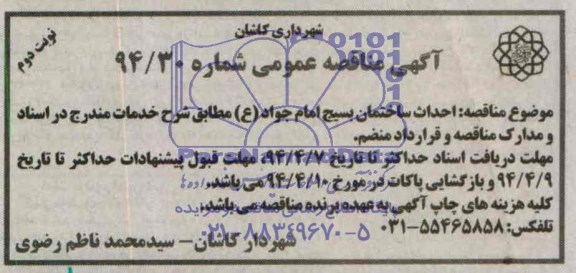 شهرداری کاشان
نوبت دوم
آگهی مناقصه عمومی شماره ۹۴/۳۰
موضوع مناقصه: احداث ساختمان بسیج امام جواد (ع) مطابق شرح خدمات مندرج در اسناد
و مدارک مناقصه و قرارداد منضم.
مهلت دریافت اسناد حداکثر تا تاریخ ۹۴/۴/۷، مهلت قبول پیشنهادات حداکثر تا تاریخ
۹۴/۴/۹ و بازگشایی پاکات در مورخ ۹۴/۴/۱۰ می باشد.
کلیه هزینه های چاپ آگهی به عهده برنده مناقصه می باشد.
تلفکس: ۵۵۴۶۵۸۵۸-۰۳۱
شهردار کاشان – سیدمحمد ناظم رضوی
۰۲۱-۸۸۳۴۹۶۷۰-۵